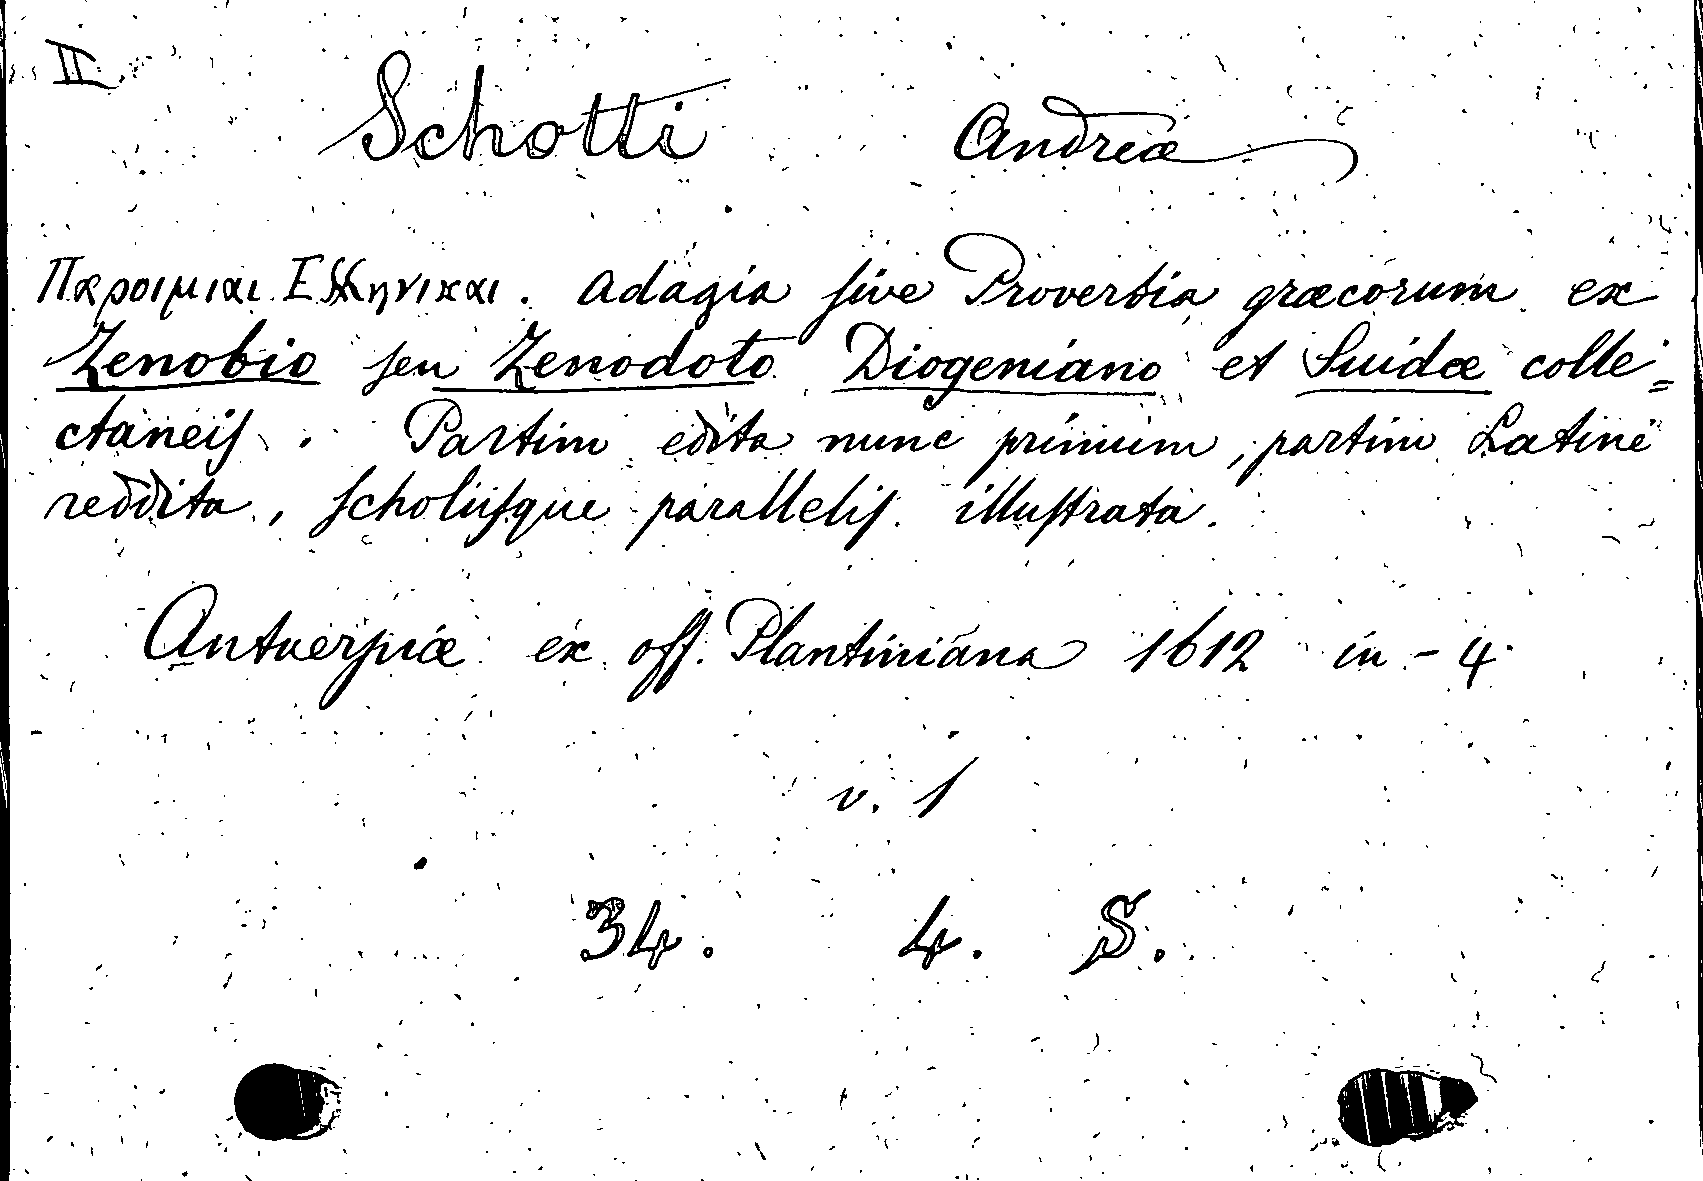 II
Schotti Andreæ
Παροιμιαι Ελληνικαι. Adagia sive Proverbia græcorum ex
Zenobio seu Zenodoto Diogeniano et Suidæ colle=
ctaneis. Partim edita nunc primum, partim Latine
reddita, scholiisque parallelis illustrata.
Antverpiæ ex off. Plantiniana 1612 in-4
v. 1
34. 4. S.